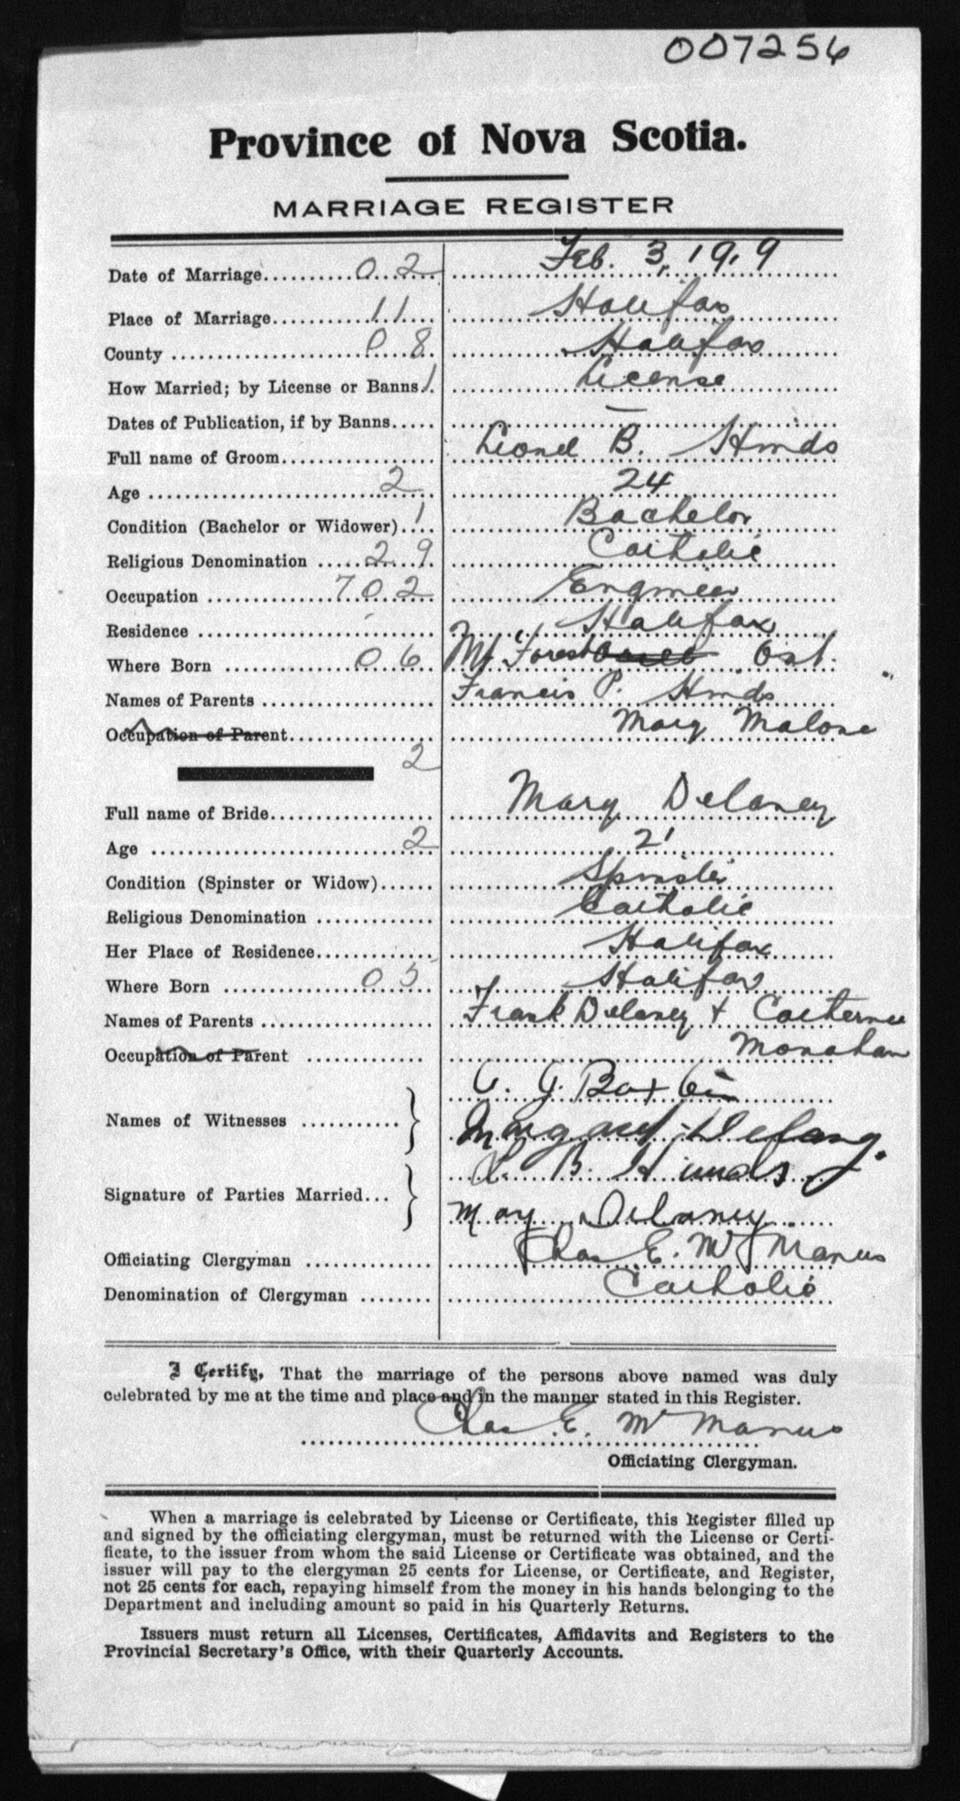 007256
Province of Nova Scotia.
MARRIAGE REGISTER
Date of Marriage 02 Feb. 3, 1919
Place of Marriage 11 Halifax
County 08 Halifax
How Married; by License or Banns 1 License
Dates of Publication, if by Banns —
Full name of Groom Lionel B. Hinds
Age 2 24
Condition (Bachelor or Widower) 1 Bachelor
Religious Denomination 29 Catholic
Occupation 702 Engineer
Residence Halifax
Where Born 06 Mt Forest Ont.
Names of Parents Francis P. Hinds
Occupation of Parent Mary Malone
2
Full name of Bride Mary Delaney
Age 2 21
Condition (Spinster or Widow) Spinster
Religious Denomination Catholic
Her Place of Residence Halifax
Where Born 05 Halifax
Names of Parents Frank Delaney + Catherine
Occupation of Parent Monahan
Names of Witnesses
Margaret Delaney.
L. B. Hinds
Signature of Parties Married
May Delaney.
Officiating Clergyman Chas E. McManus
Denomination of Clergyman Catholic
I Certify, That the marriage of the persons above named was duly
celebrated by me at the time and place and in the manner stated in this Register.
Chas. E. McManus
Officiating Clergyman.
When a marriage is celebrated by License or Certificate, this Register filled up
and signed by the officiating clergyman, must be returned with the License or Certi-
ficate, to the issuer from whom the said License or Certificate was obtained, and the
issuer will pay to the clergyman 25 cents for License, or Certificate, and Register,
not 25 cents for each, repaying himself from the money in his hands belonging to the
Department and including amount so paid in his Quarterly Returns.
Issuers must return all Licenses, Certificates, Affidavits and Registers to the
Provincial Secretary's Office, with their Quarterly Accounts.